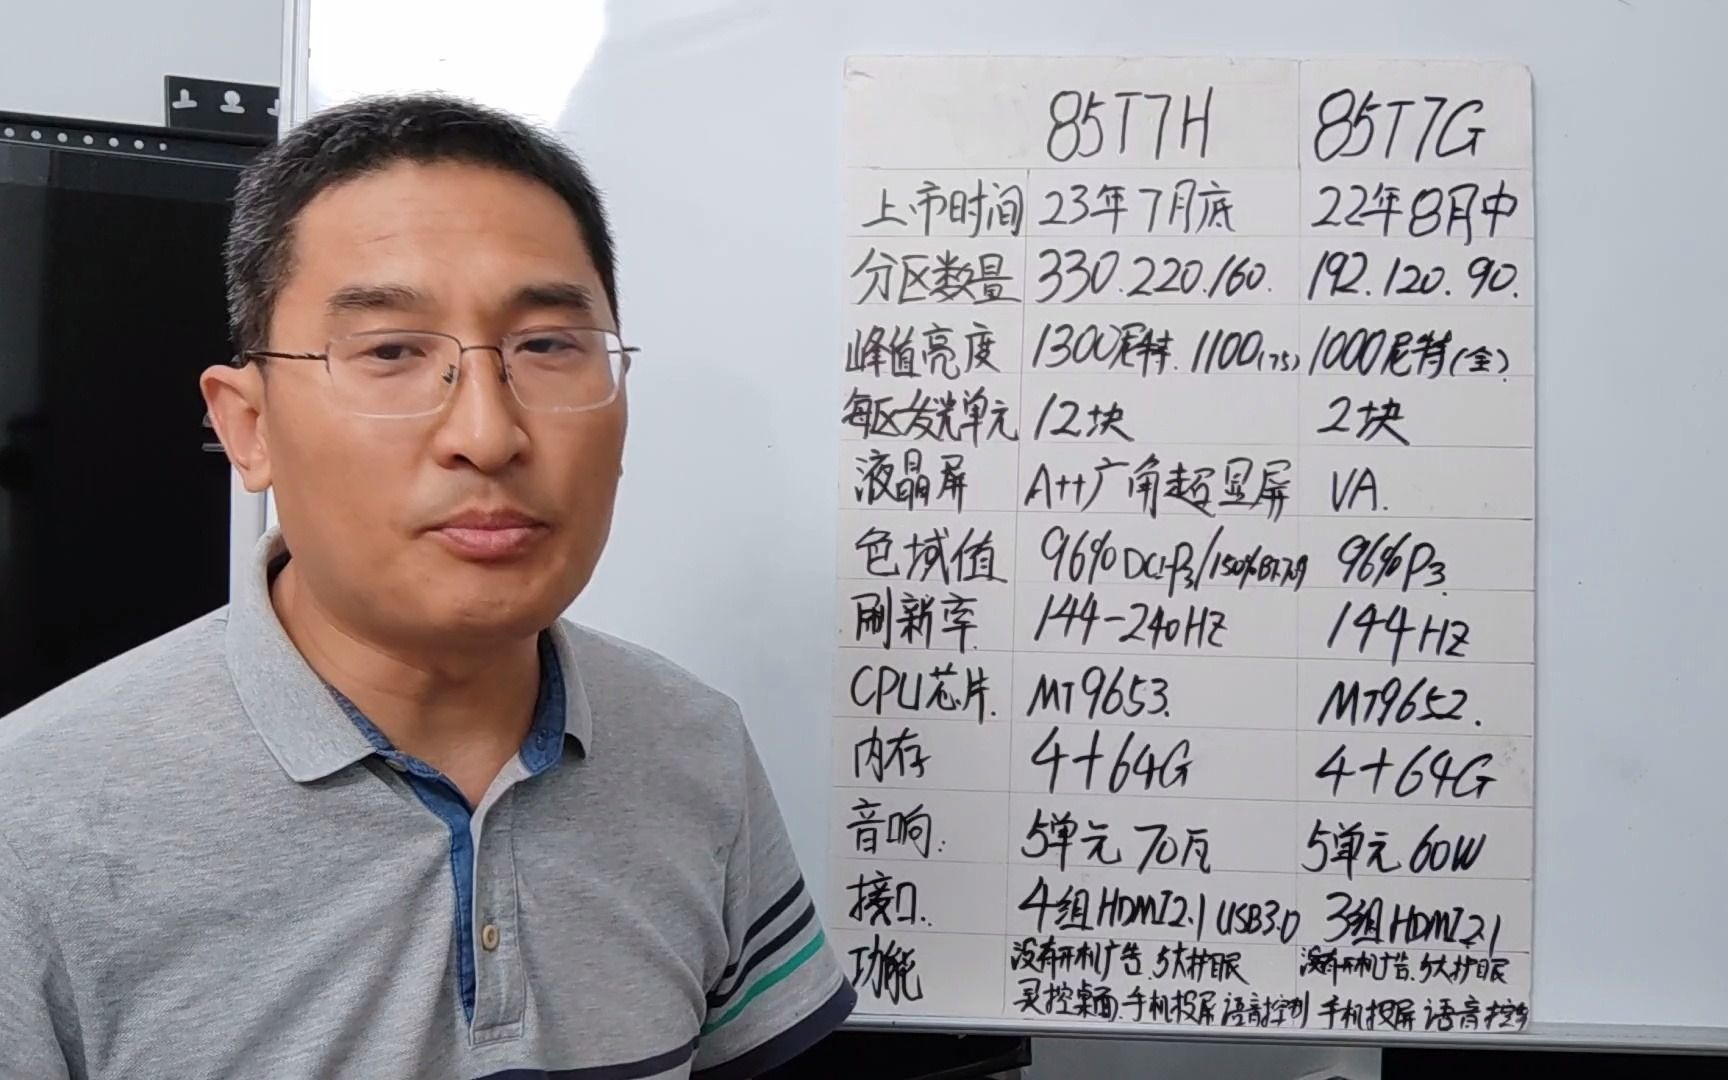 85T7H 85T7G
上市时间 23年7月底 22年8月中
分区数量 330.220.160. 192.120.90.
峰值亮度 1300尼特.1100(75) 1000尼特(全)
每区发光单元 12块 2块
液晶屏 A++广角超显屏 VA.
色域值 96%DCI-P3/150%BT709 96%P3
刷新率 144-240HZ 144HZ
CPU芯片. MT9653. MT9652.
内存 4+64G 4+64G
音响. 5单元70瓦 5单元60W
接口. 4组HDMI2.1 USB3.0 3组HDMI2.1
功能 没有开机广告.5大护眼 没有开机广告.5大护眼
灵控桌面.手机投屏 语音控制 手机投屏 语音控制